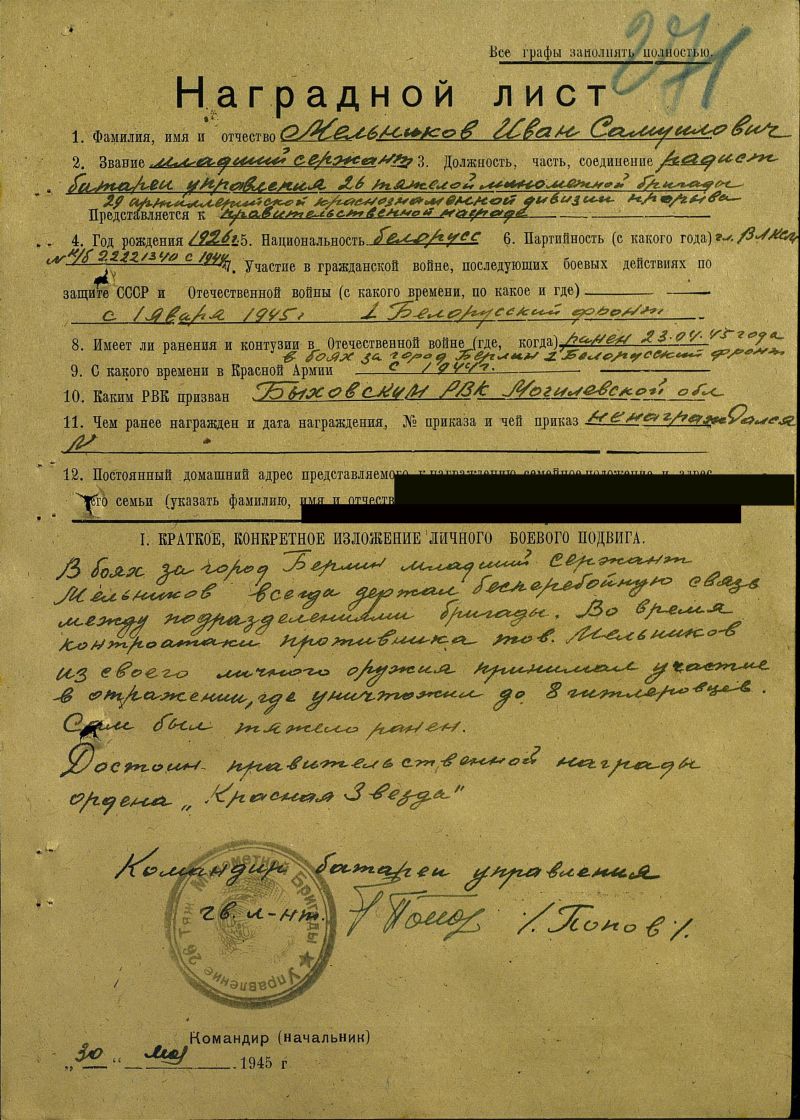 271
Все графы заполнять полностью.
Наградной лист
1. Фамилия, имя и отчество Мельников Иван Самуилович
2. Звание младший сержант 3. Должность, часть, соединение радист
батареи управления 26 тяжелой минометной бригады
29 артиллерийской краснознаменной дивизии прорыва
Представляется к правительственной награде
4. Год рождения 1926г. 5. Национальность белорусс 6. Партийность (с какого года) чл. ВЛКСМ
№ ч/б 22221340 с 1944 7. Участие в гражданской войне, последующих боевых действиях по
защите СССР и Отечественной войны (с какого времени, по какое и где)
с 1 января 1945 г 1 Белорусский фронт
8. Имеет ли ранения и контузии в Отечественной войне (где, когда) ранен 23.04.45 года
в боях за город Берлин 1 Белорусский фронт
9. С какого времени в Красной Армии с 1944г.
10. Каким РВК призван Быховским РВК Могилевской обл
11. Чем ранее награжден и дата награждения, № приказа и чей приказ ненаграждался
12. Постоянный домашний адрес представляемого к награждению семейное положение и адрес
его семьи (указать фамилию, имя и отчеств
I. КРАТКОЕ, КОНКРЕТНОЕ ИЗЛОЖЕНИЕ ЛИЧНОГО БОЕВОГО ПОДВИГА.
В боях за город Берлин младший сержант
Мельников всегда держал бесперебойную связь
между подразделениями бригады. Во время
контроатаки противника тов. Мельников
из своего личного оружия принимал участие
в отражении, где уничтожил до 8 гитлеровцев.
Сам был тяжело ранен.
Достоин правительственной награды
ордена „Красная Звезда"
Командир батареи управления
гв. л-нт. Попов /Попов/.
Управление 26 Тяж Минометной Бригады
Командир (начальник)
„30" мая 1945 г